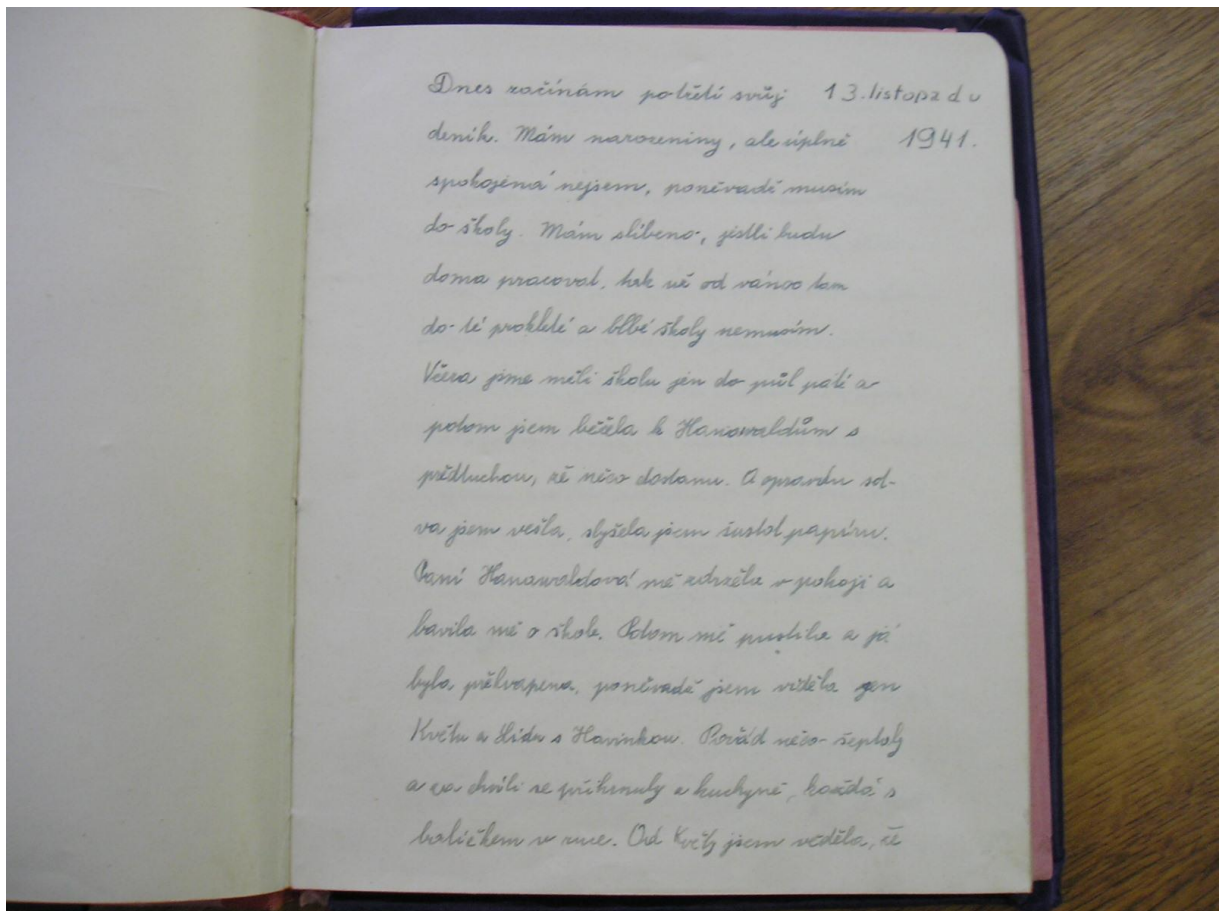 Dnes začínám potřetí svůj 13. listopadu
deník. Mám narozeniny, ale úplně 1941.
spokojená nejsem, poněvadž musím
do školy. Mám slíbeno, jestli budu
doma pracovat, tak už od vánoc tam
do té prokleté a blbé školy nemusím.
Včera jsme měli školu jen do půl páté a
potom jsem běžela k Hanawaldům s
předtuchou, že něco dostanu. A opravdu sot-
va jsem vešla, slyšela jsem šustot papíru.
Paní Hanawaldová mě zdržela v pokoji a
bavila mě o škole. Potom mě pustila a já
byla překvapena, poněvadž jsem viděla jen
Květu a Lidu s Havinkou. Pořád něco šeptaly
a za chvíli se přihnuly z kuchyně, každá s
balíčkem v ruce. Od Květy jsem věděla, že